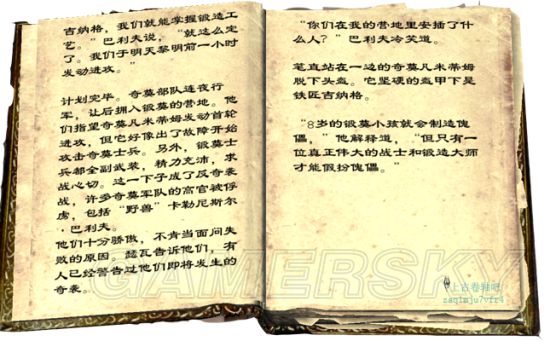 吉纳格，我们就能掌握锻造工
艺。”巴利夫说，“就这么定
了。我们于明天黎明前一小时
发动进攻。”
计划完毕。奇莫部队连夜行
军，让后拥入锻莫的营地。他
们指望奇莫凡米蒂姆发动首轮
进攻，但它好像出了故障开始
攻击奇莫士兵。另外，锻莫士
兵都全副武装，精力充沛，求
战心切。这一下子成了反奇袭
战，许多奇莫军队的高官被俘
虏，包括“野兽”卡勒尼斯尔
·巴利夫。
他们十分骄傲，不肯当面问失
败的原因。瓦告诉他们，有
人已经警告过他们即将发生的
奇袭。
“你们在我的营地里安插了什
么人？”巴利夫冷笑道。
笔直站在一边的奇莫凡米蒂姆
脱下头盔。它坚硬的盔甲下是
铁匠吉纳格。
“8岁的锻莫小孩就会制造傀
儡，”他解释道，“但只有一
位真正伟大的战士和锻造大师
才能假扮傀儡。”
GAMERSKY
上古卷轴吧
zaqimju7vfr4